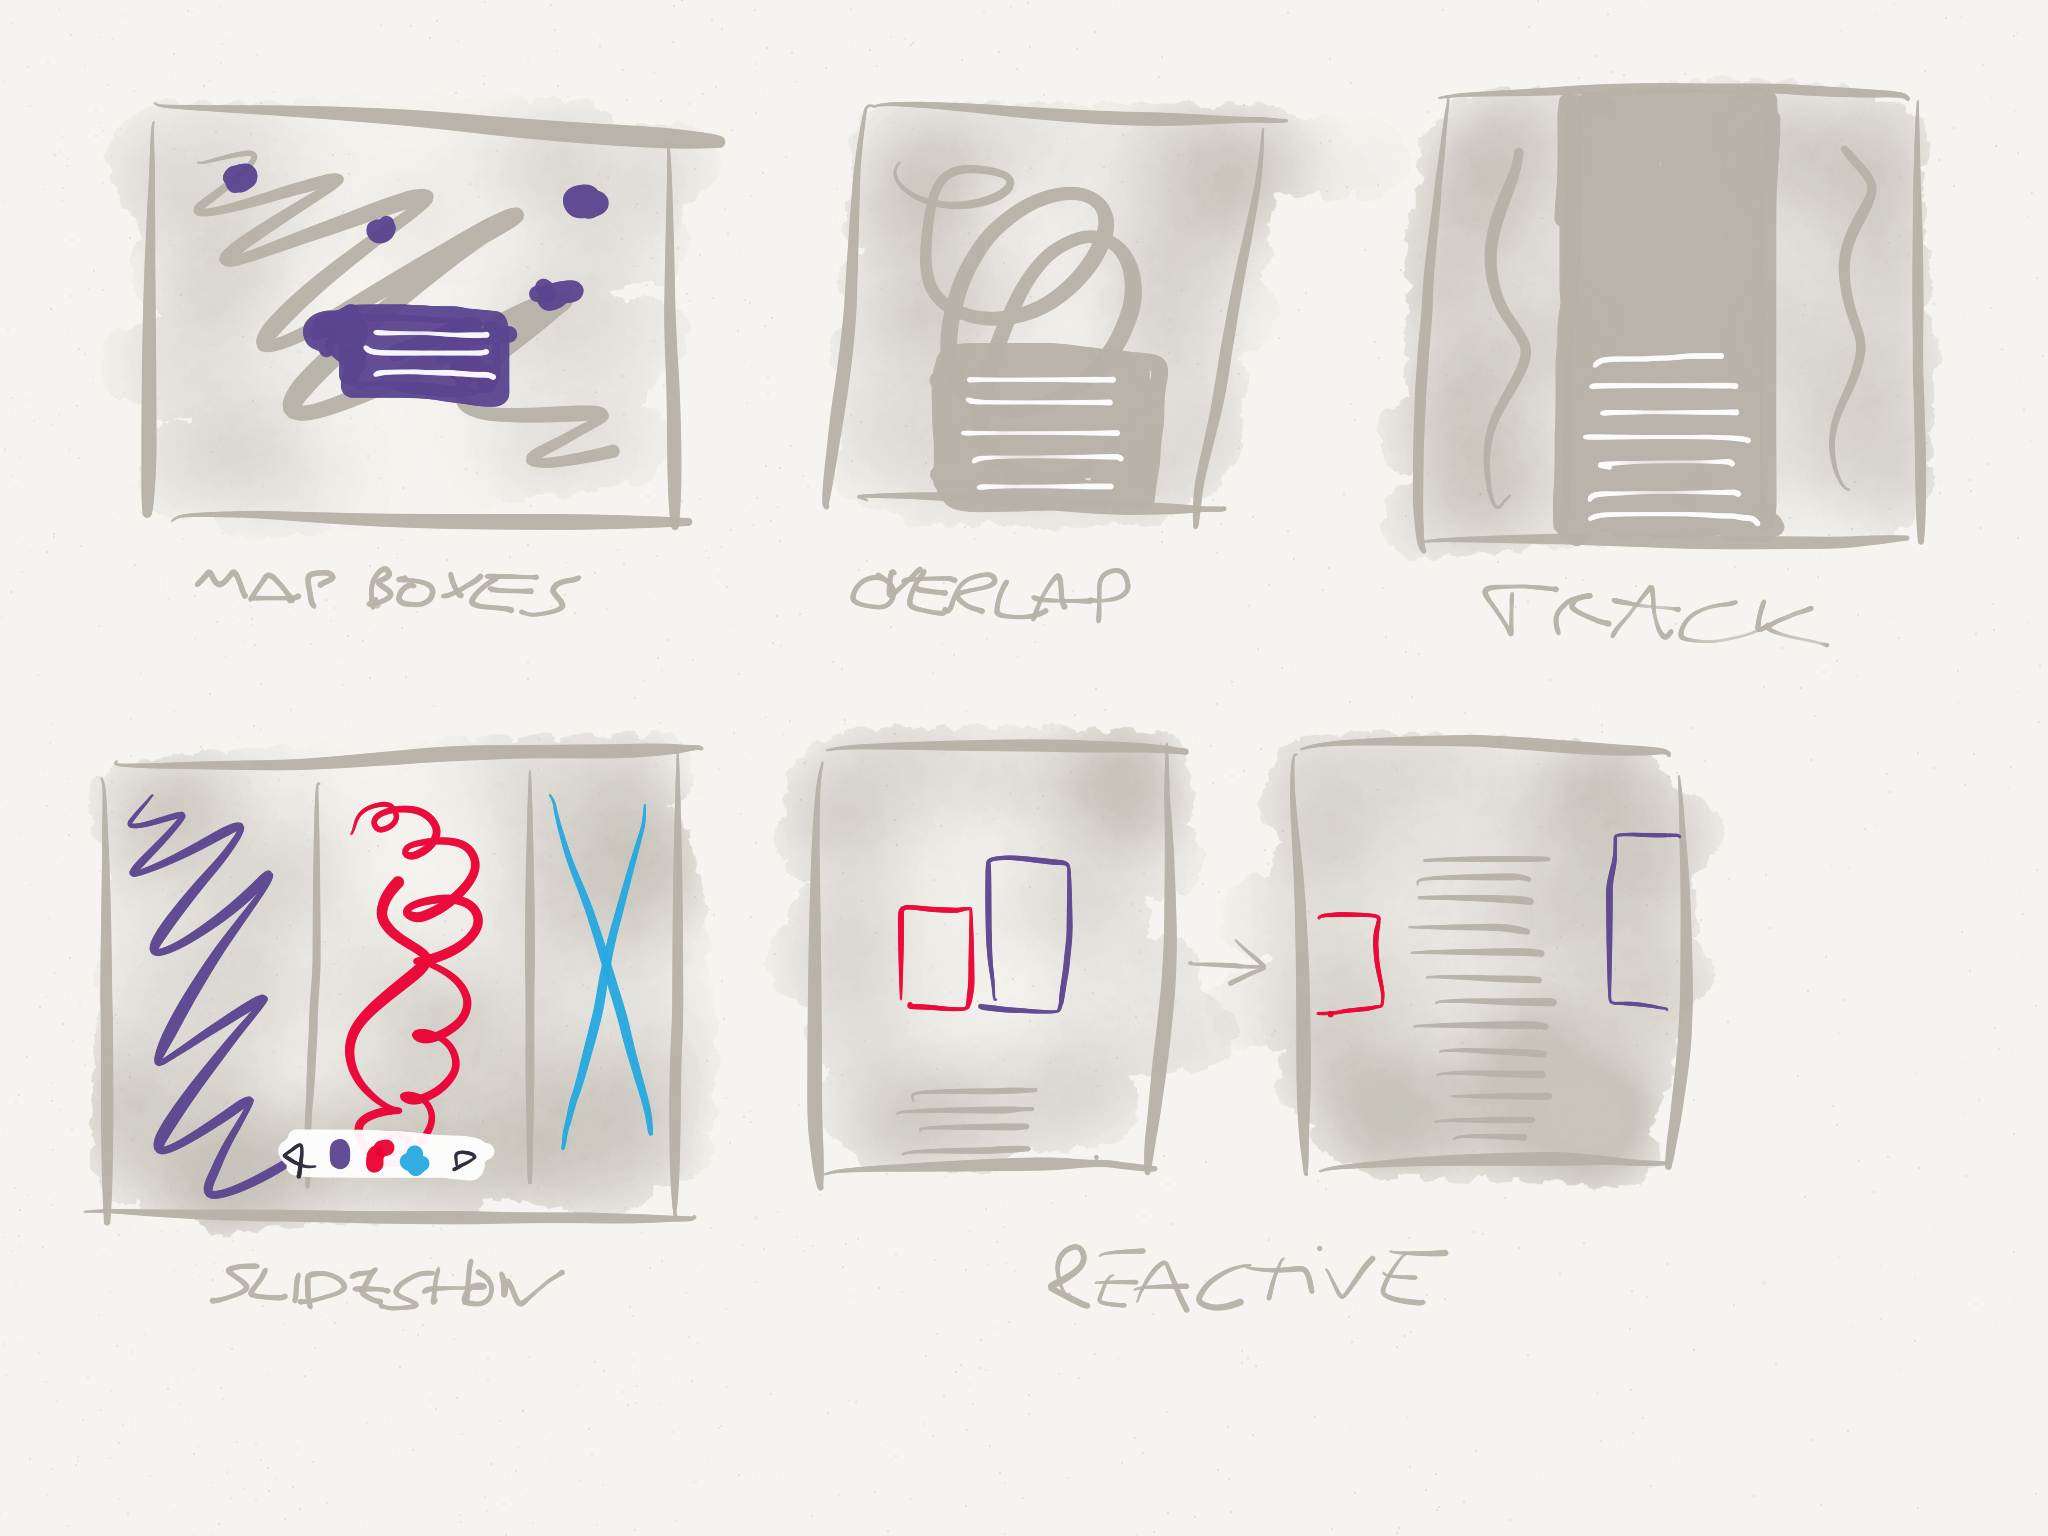 MAP BOXES
OVERLAP
TRACK
SLIDESHOW
REACTIVE